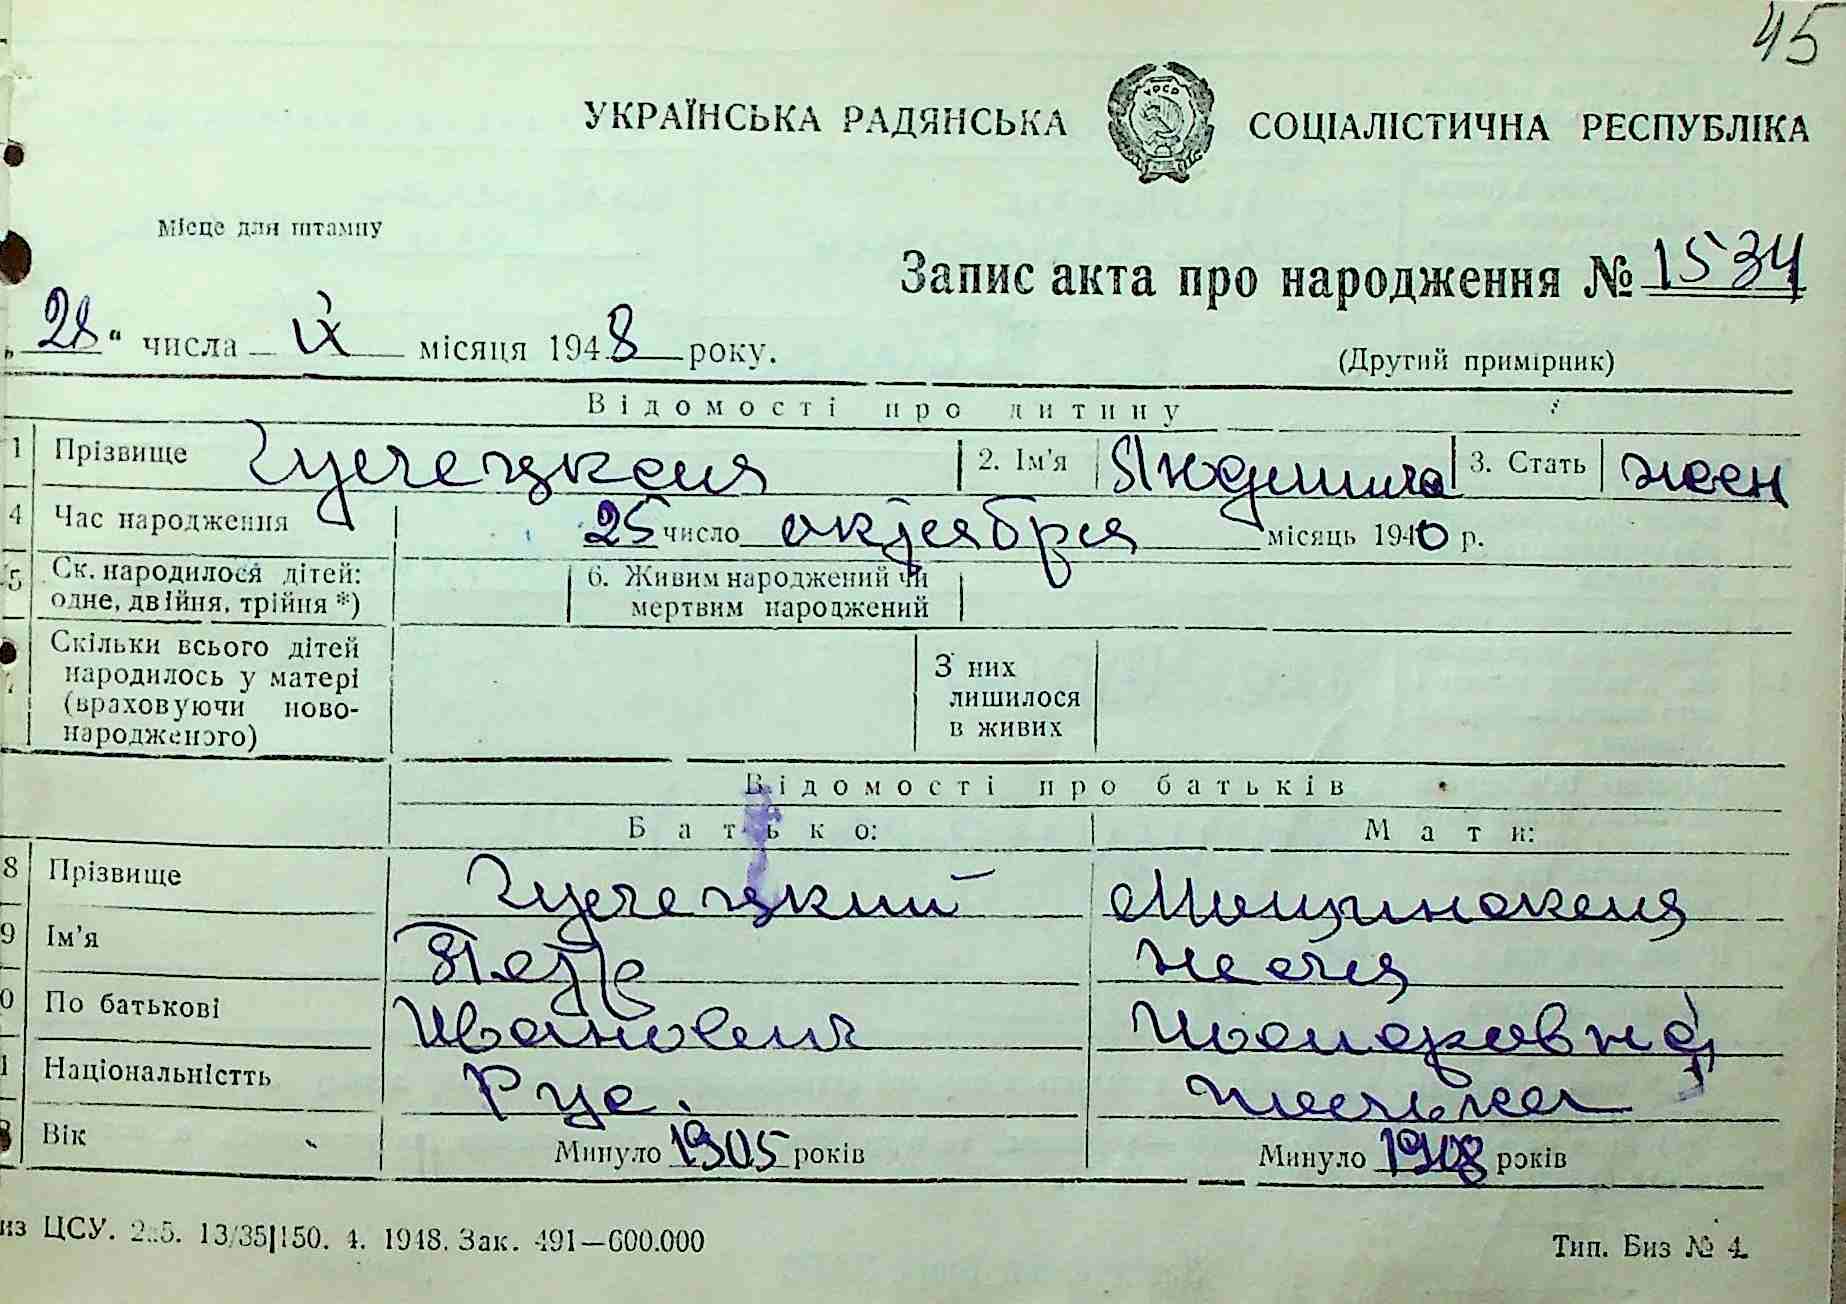 45
УКРАЇНСЬКА РАДЯНСЬКА СОЦІАЛІСТИЧНА РЕСПУБЛІКА
УРСР
Місце для штампу
Запис акта про народження № 1534
„28“ числа IX місяця 1948 року.
(Другий примірник)
Відомості про дитину
1 Прізвище 2. Ім'я Людмила 3. Стать жен
4 Час народження 25 число октября місяць 1940 р.
5 Ск. народилося дітей: одне, двійня, трійня *) 6. Живим народжений чи мертвим народжений
Скільки всього дітей народилось у матері (враховуючи ново-народженого) З них лишилося в живих
Відомості про батьків
Батько: Мати:
8 Прізвище
9 Ім'я Петр
0 По батькові Иванович
1 Національністть Рус. полька
Вік Минуло 1905 років Минуло 1908 років
из ЦСУ. 2.5. 13/35|150. 4. 1948. Зак. 491—600.000 Тип. Биз № 4.